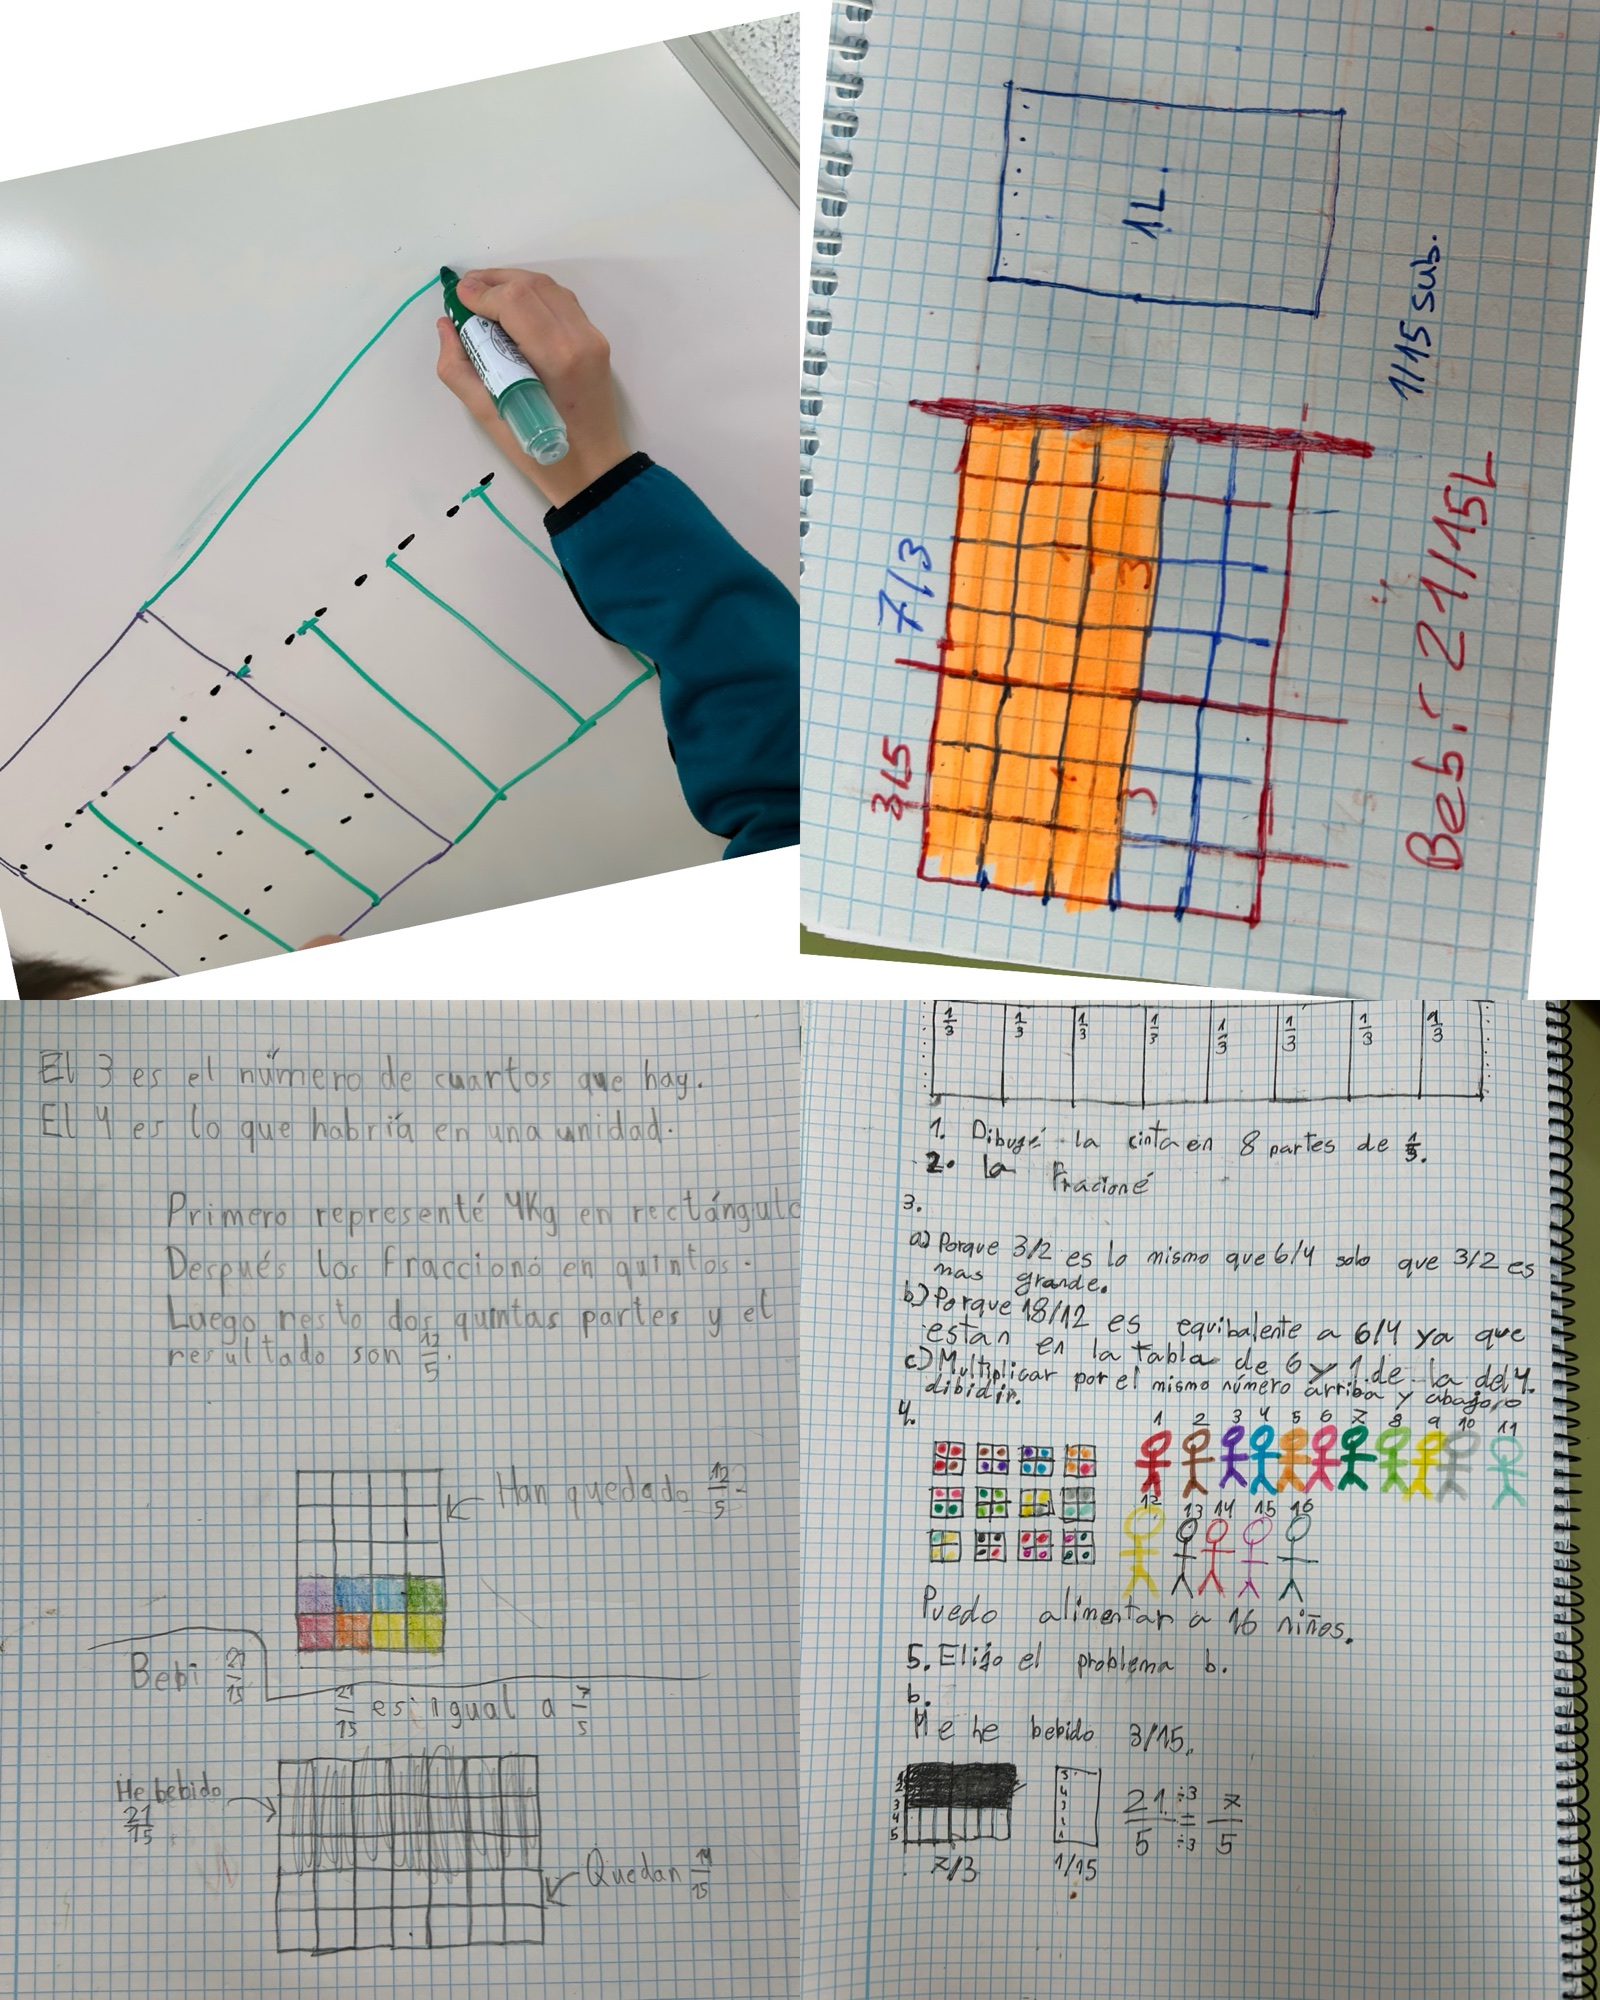 1L
7/3
3/5
3
3
1/15 sub.
Bebí: 21/15L
El 3 es el número de cuartos que hay.
El 4 es lo que habría en una unidad.
Primero representé 4Kg en rectángulo
Después los fracciono en quintos.
Luego resto dos quintas partes y el
resultado son 12/5.
Han quedado 12/5
Bebi 21/15
21/15 es igual a 7/5
He bebido
21/15
Quedan 14/15
1/3 1/3 1/3 1/3 1/3 1/3 1/3 1/3
1. Dibujé la cinta en 8 partes de 1/3.
2. la fracioné
3.
a) Porque 3/2 es lo mismo que 6/4 solo que 3/2 es
mas grande.
b) Porque 18/12 es equibalente a 6/4 ya que
estan en la tabla de 6 y 1 de la del 4.
c) Multiplicar por el mismo número arriba y abajo, o
dibidir.
4.
1 2 3 4 5 6 7 8 9 10 11
12 13 14 15 16
Puedo alimentar a 16 niños.
5. Elijo el problema b.
b.
Me he bebido 3/15.
1
2
3
4
5
7/3
1/15
21/5 ÷3 = ÷3 7/5